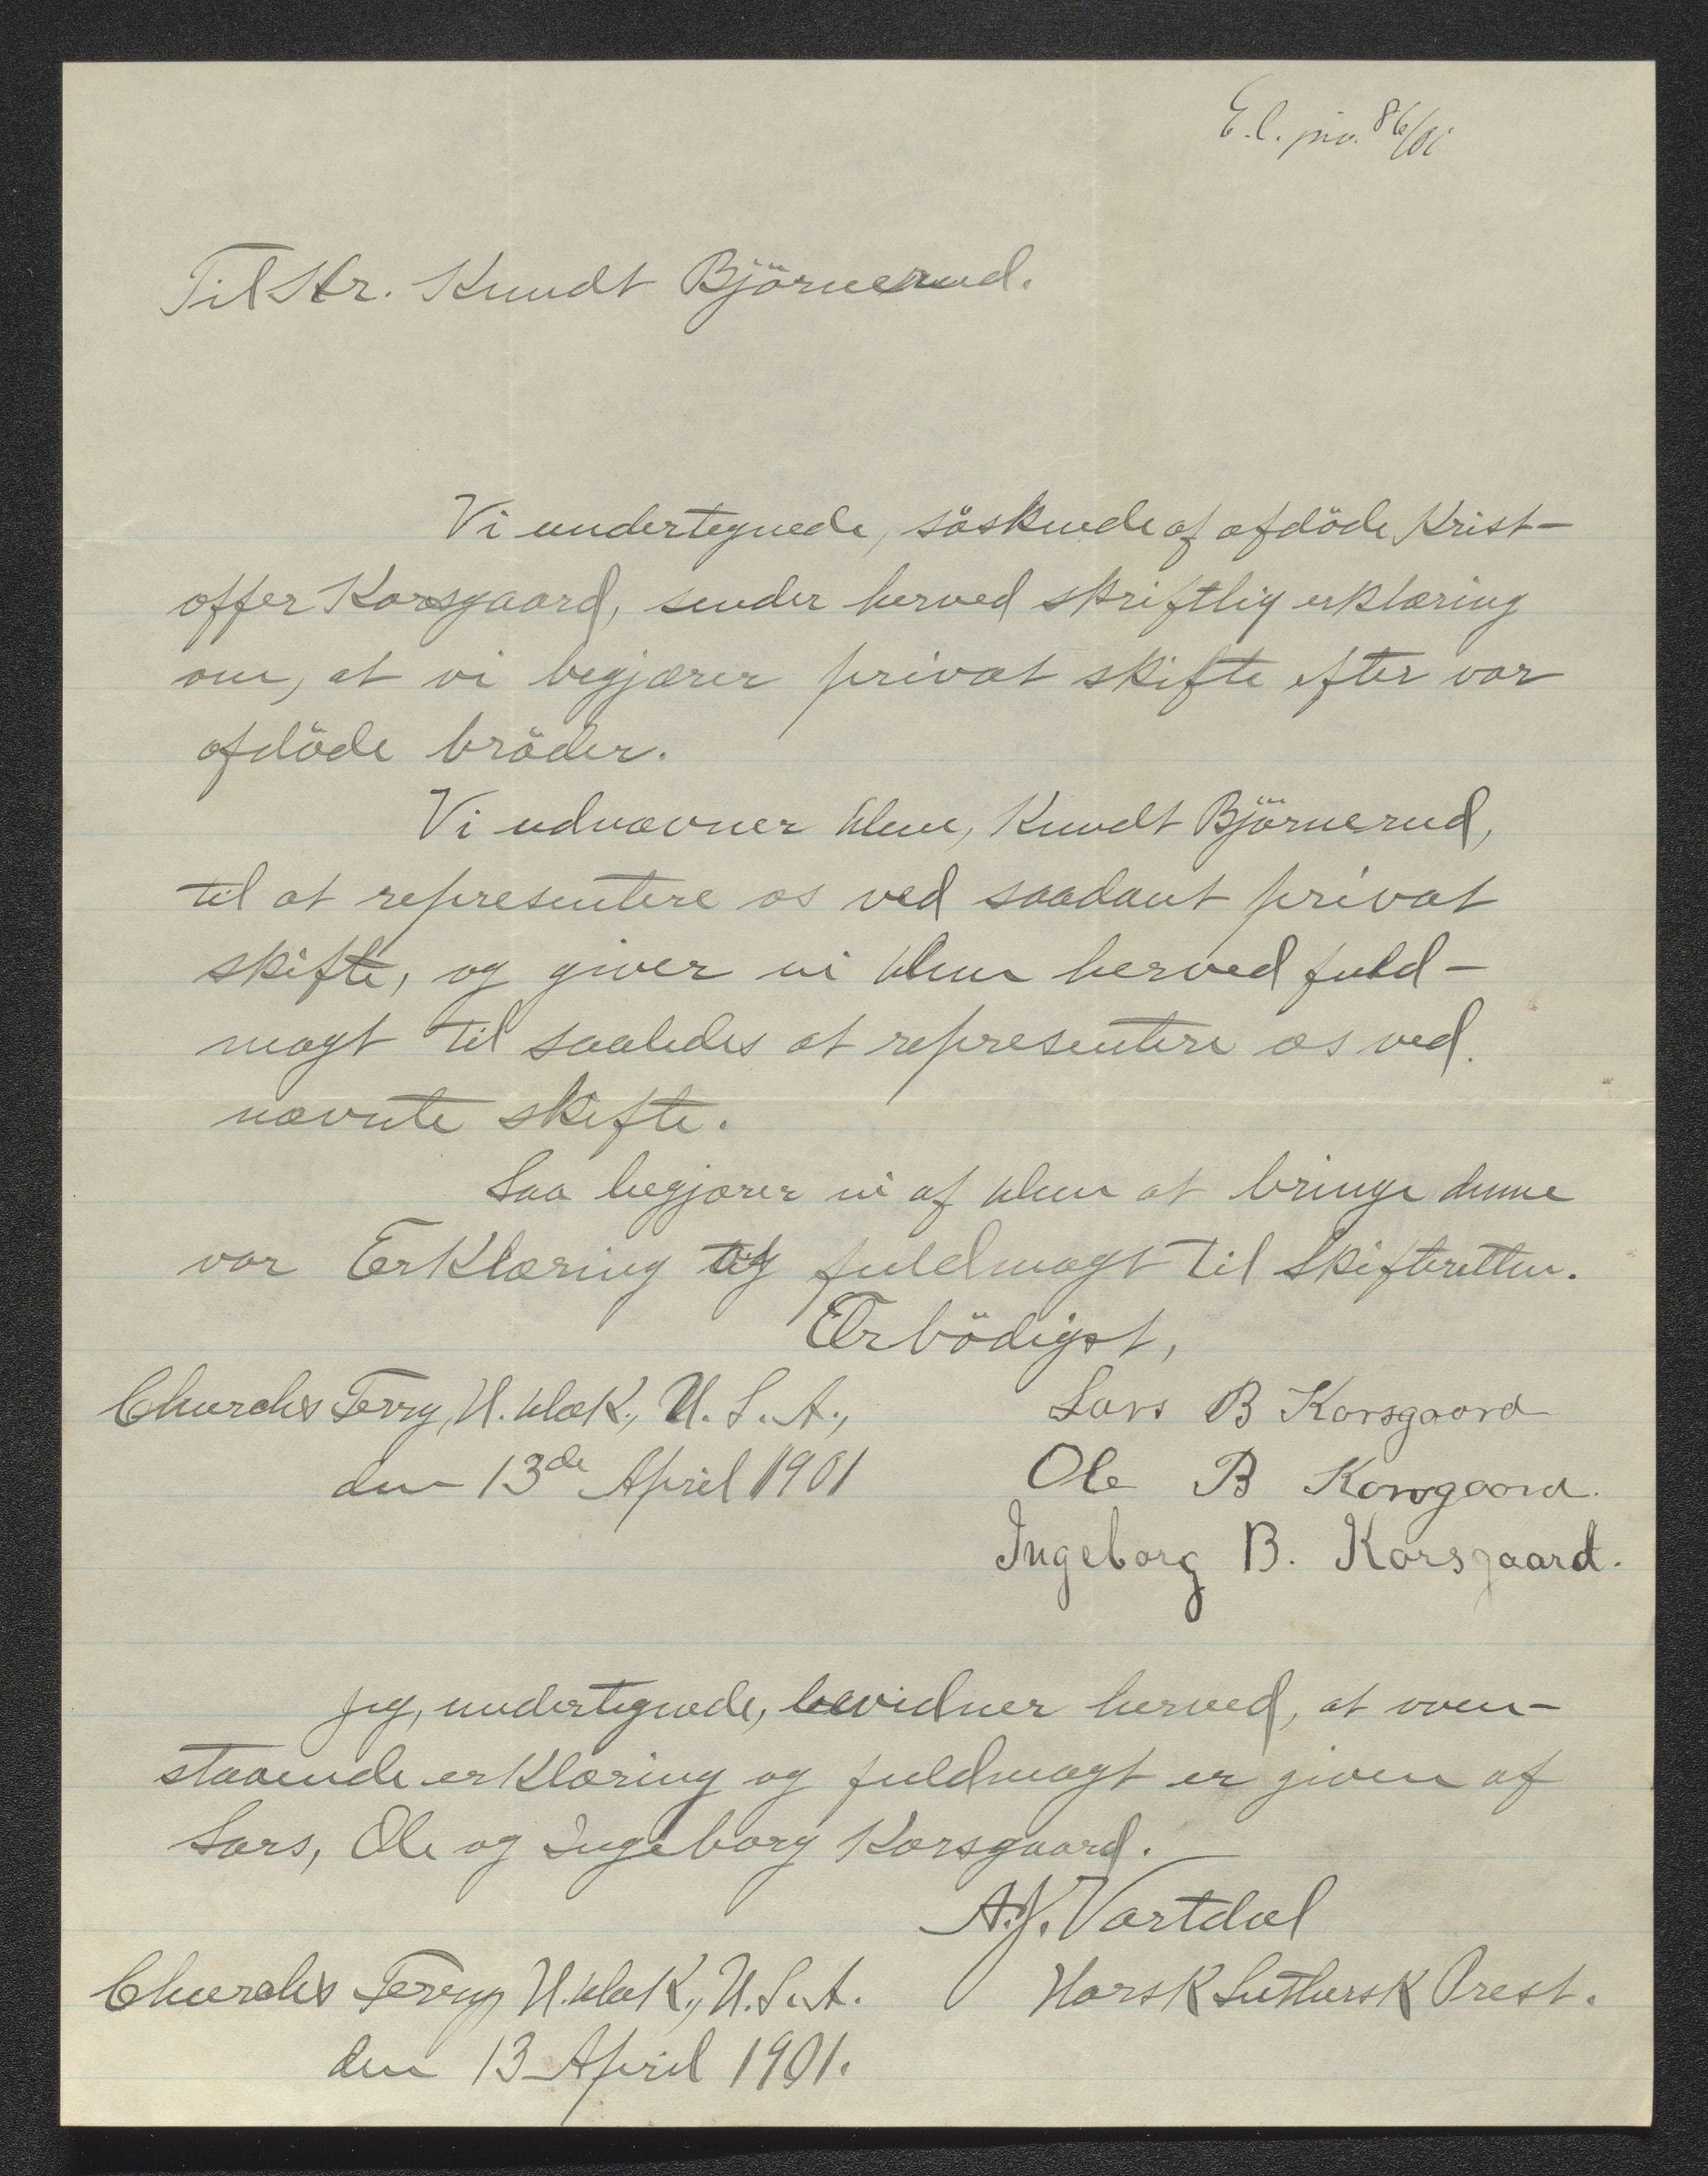 E.l. jno. 86/01
Til Hr. Knudt Björnerud.
Vi undertegnede, söskende af afdöde Krist-
offer Korsgaard, sender herved skriftlig erklæring
om, at vi begjærer privat skifte efter vor
afdöde bröder.
Vi udnævner Dem, Knudt Björnerud,
til at representere os ved saadant privat
skifte, og giver vi Dem herved fuld-
magt til saaledes at representere os ved
nævnte skifte.
Saa begjærer vi af Dem at bringe denne
vor Erklæring og fuldmagt til Skifteretten.
Ærbödigst,
Churchs Ferry, N. Dak., U. S. A.,
den 13de April 1901
Lars B Korsgaard
Ole B Korsgaard.
Ingeborg B. Korsgaard.
Jeg, undertegnede, bevidner herved, at oven-
staaende erklæring og fuldmagt er given af
Lars, Ole og Ingeborg Korsgaard.
A. J. Vartdal
Norsk Luthersk Prest.
Churchs Ferry, N. Dak., U. S. A.
den 13 April 1901.